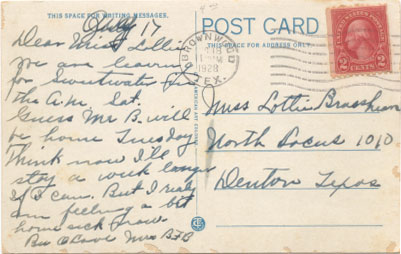 THIS SPACE FOR WRITING MESSAGES.
POST CARD
THIS SPACE FOR ADDRESS ONLY.
BROWNWOOD
TEX.
1928
2 CENTS 2
July 17
Dear Miss Lottie
We are leaving
for Sweetwater
the A.M. Sat.
Guess Mr B. will
be home Tuesday
Think now I'll
stay a week longer
If I can. But I really
am feeling a bit
home sick now.
Love Mrs BFB
Miss Lottie Brashear
North Locus 1010
Denton Texas